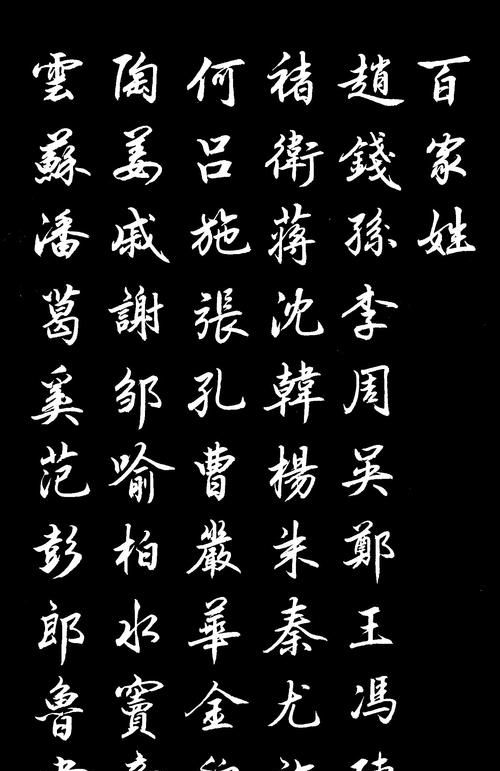 百家姓
趙錢孫李周吳鄭王馮
褚衛蔣沈韓楊朱秦尤
何呂施張孔曹嚴華金
陶姜戚謝邹喻柏水竇
雲蘇潘葛奚范彭郎魯